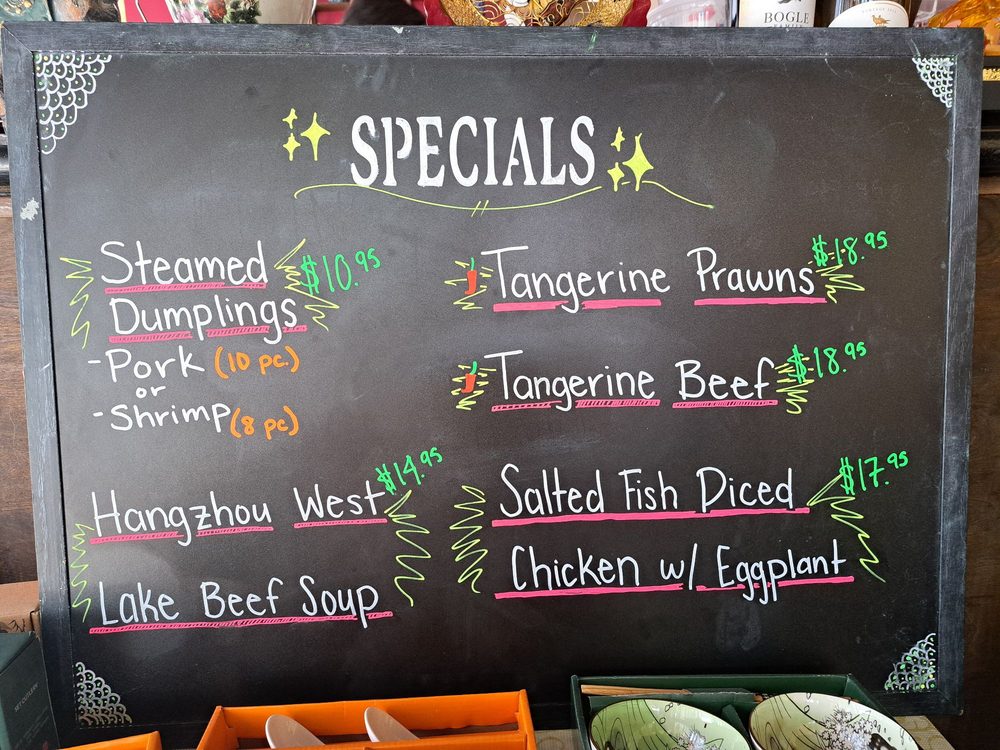 BOGLE
SPECIALS
Steamed $10.95
Dumplings
-Pork (10 pc.)
or
-Shrimp (8 pc)
Hangzhou West $14.95
Lake Beef Soup
Tangerine Prawns $18.95
Tangerine Beef $18.95
Salted Fish Diced $17.95
Chicken w/ Eggplant